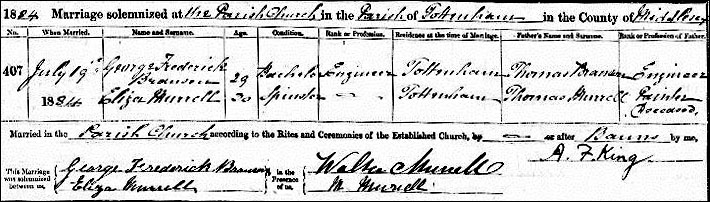 1884 Marriage solemnized at the Parish Church in the Parish of Tottenham in the County of Middlesex
No. When Married. Name and Surname. Age. Condition. Rank or Profession. Residence at the time of Marriage. Father's Name and Surname. Rank or Profession of Father.
407 July 19th 1884 George Frederick Branson 29 Bachelor Engineer Tottenham Thomas Branson Engineer
Eliza Murrell 30 Spinster — Tottenham Thomas Murrell Painter Deceased
Married in the Parish Church according to the Rites and Ceremonies of the Established Church, by — or after Banns by me,
A. F King
This Marriage was solemnized between us, George Frederick Branson Eliza Murrell in the Presence of us, Walter Murrell M Murrell